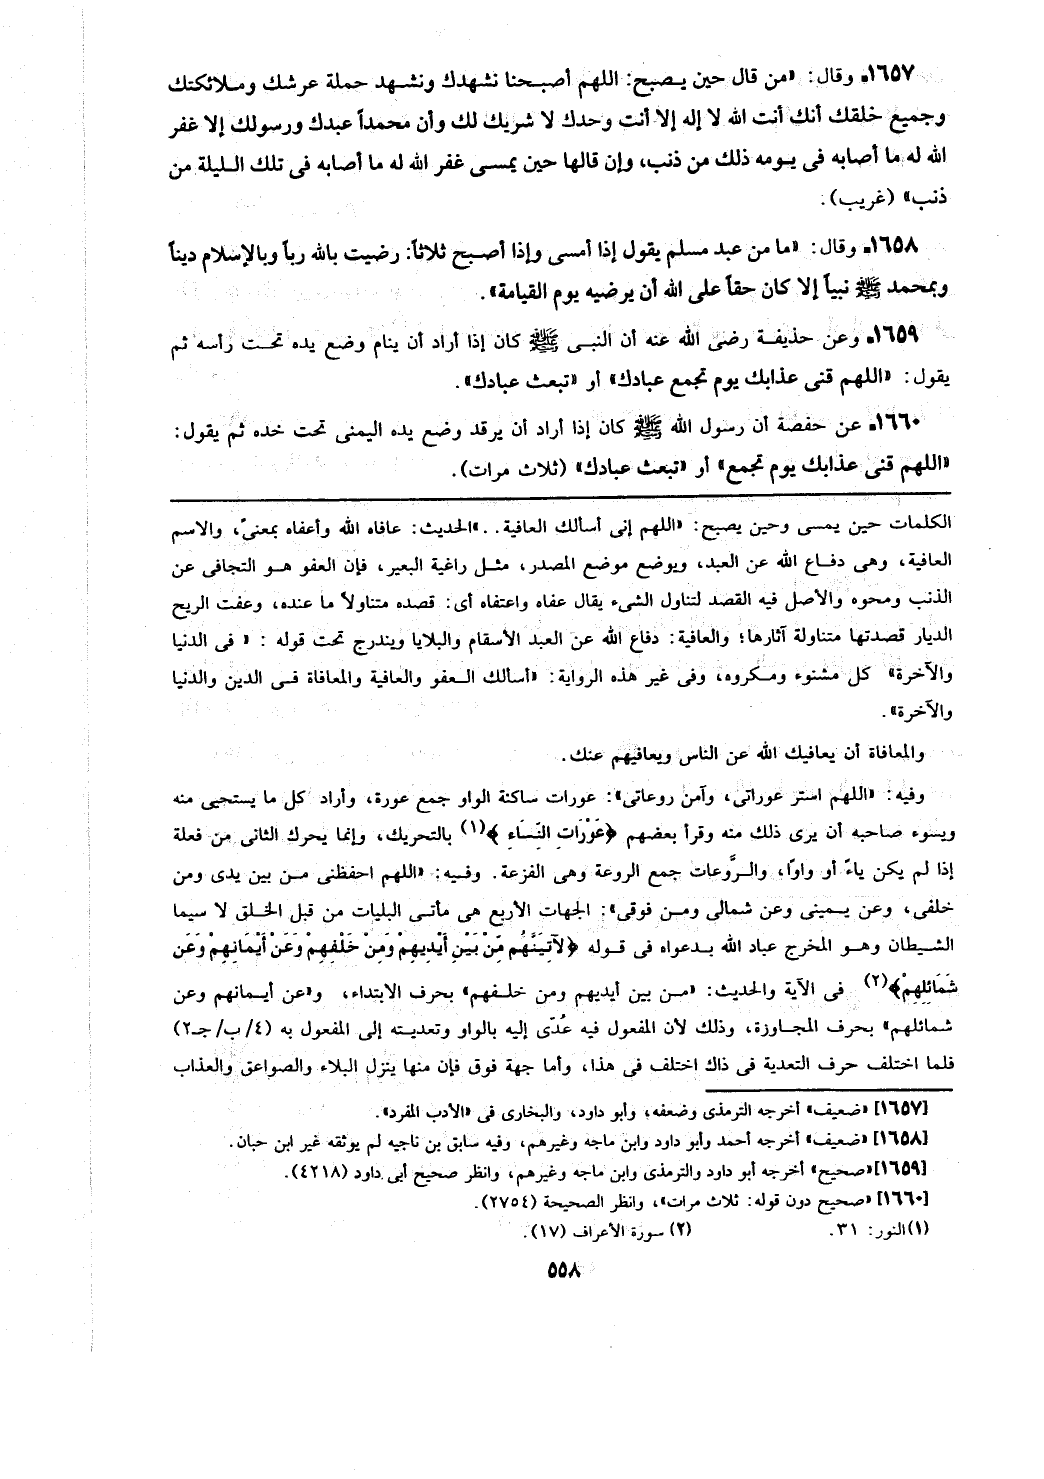 ١٦٥٧ـ وقال: «من قال حين يصبح: اللهم أصبحنا نشهدك ونشهد حملة عرشك وملائكتك
وجميع خلقك أنك أنت الله لا إله إلا أنت وحدك لا شريك لك وأن محمداً عبدك ورسولك إلا غفر
الله له ما أصابه فى يومه ذلك من ذنب، وإن قالها حين يمسى غفر الله له ما أصابه فى تلك الليلة من
ذنب» (غريب).
١٦٥٨ـ وقال: «ما من عبد مسلم يقول إذا أمسى وإذا أصبح ثلاثاً: رضيت بالله رباً وبالإسلام ديناً
وبمحمد ﷺ نبياً إلا كان حقاً على الله أن يرضيه يوم القيامة».
١٦٥٩ـ وعن حذيفة رضى الله عنه أن النبى ﷺ كان إذا أراد أن ينام وضع يده تحت رأسه ثم
يقول: «اللهم قنى عذابك يوم تجمع عبادك» أو «تبعث عبادك».
١٦٦٠ـ عن حفصة أن رسول الله ﷺ كان إذا أراد أن يرقد وضع يده اليمنى تحت خده ثم يقول:
«اللهم قنى عذابك يوم تجمع» أو «تبعث عبادك» (ثلاث مرات).
الكلمات حين يمسى وحين يصبح: «اللهم إنى أسألك العافية..»الحديث: عافاه الله وأعفاه بمعنىً، والاسم
العافية، وهى دفاع الله عن العبد، ويوضع موضع المصدر، مثل راغية البعير، فإن العفو هو التجافى عن
الذنب ومحوه والأصل فيه القصد لتناول الشىء يقال عفاه واعتفاه أى: قصده متناولاً ما عنده، وعفت الريح
الديار قصدتها متناولة آثارها؛ والعافية: دفاع الله عن العبد الأسقام والبلايا ويندرج تحت قوله : « فى الدنيا
والآخرة» كل مشنوء ومكروه، وفى غير هذه الرواية: «أسألك العفو والعافية والمعافاة فى الدين والدنيا
والآخرة».
والمعافاة أن يعافيك الله عن الناس ويعافيهم عنك.
وفيه: «اللهم استر عوراتى، وآمن روعاتى»: عورات ساكنة الواو جمع عورة، وأراد كل ما يستحيى منه
ويسوء صاحبه أن يرى ذلك منه وقرأ بعضهم ﴿عَوْرَاتِ النِّسَاءِ﴾(١) بالتحريك، وإنما يحرك الثانى من فعلة
إذا لم يكن ياءً أو واوًا، والرَّوعات جمع الروعة وهى الفزعة. وفيه: «اللهم احفظنى من بين يدى ومن
خلفى، وعن يمينى وعن شمالى ومن فوقى»: الجهات الأربع هى مأتى البليات من قبل الخلق لا سيما
الشيطان وهو المخرج عباد الله بدعواه فى قوله ﴿لآتِيَنَّهُم مِّنْ بَيْنِ أَيْدِيهِمْ وَمِنْ خَلْفِهِمْ وَعَنْ أَيْمَانِهِمْ وَعَن
شَمَائِلِهِمْ﴾(٢) فى الآية والحديث: «من بين أيديهم ومن خلفهم» بحرف الابتداء، و«عن أيمانهم وعن
شمائلهم» بحرف المجاوزة، وذلك لأن المفعول فيه عُدّى إليه بالواو وتعديته إلى المفعول به (٤/ب/جـ٢)
فلما اختلف حرف التعدية فى ذاك اختلف فى هذا، وأما جهة فوق فإن منها ينزل البلاء والصواعق والعذاب
[١٦٥٧] «ضعيف» أخرجه الترمذى وضعفه، وأبو داود، والبخارى فى «الأدب المفرد».
[١٦٥٨] «ضعيف» أخرجه أحمد وأبو داود وابن ماجه وغيرهم، وفيه سابق بن ناجيه لم يوثقه غير ابن حبان.
[١٦٥٩] «صحيح» أخرجه أبو داود والترمذى وابن ماجه وغيرهم، وانظر صحيح أبى داود (٤٢١٨).
[١٦٦٠] «صحيح دون قوله: ثلاث مرات»، وانظر الصحيحة (٢٧٥٤).
(١)النور: ٣١. (٢) سورة الأعراف (١٧).
٥٥٨